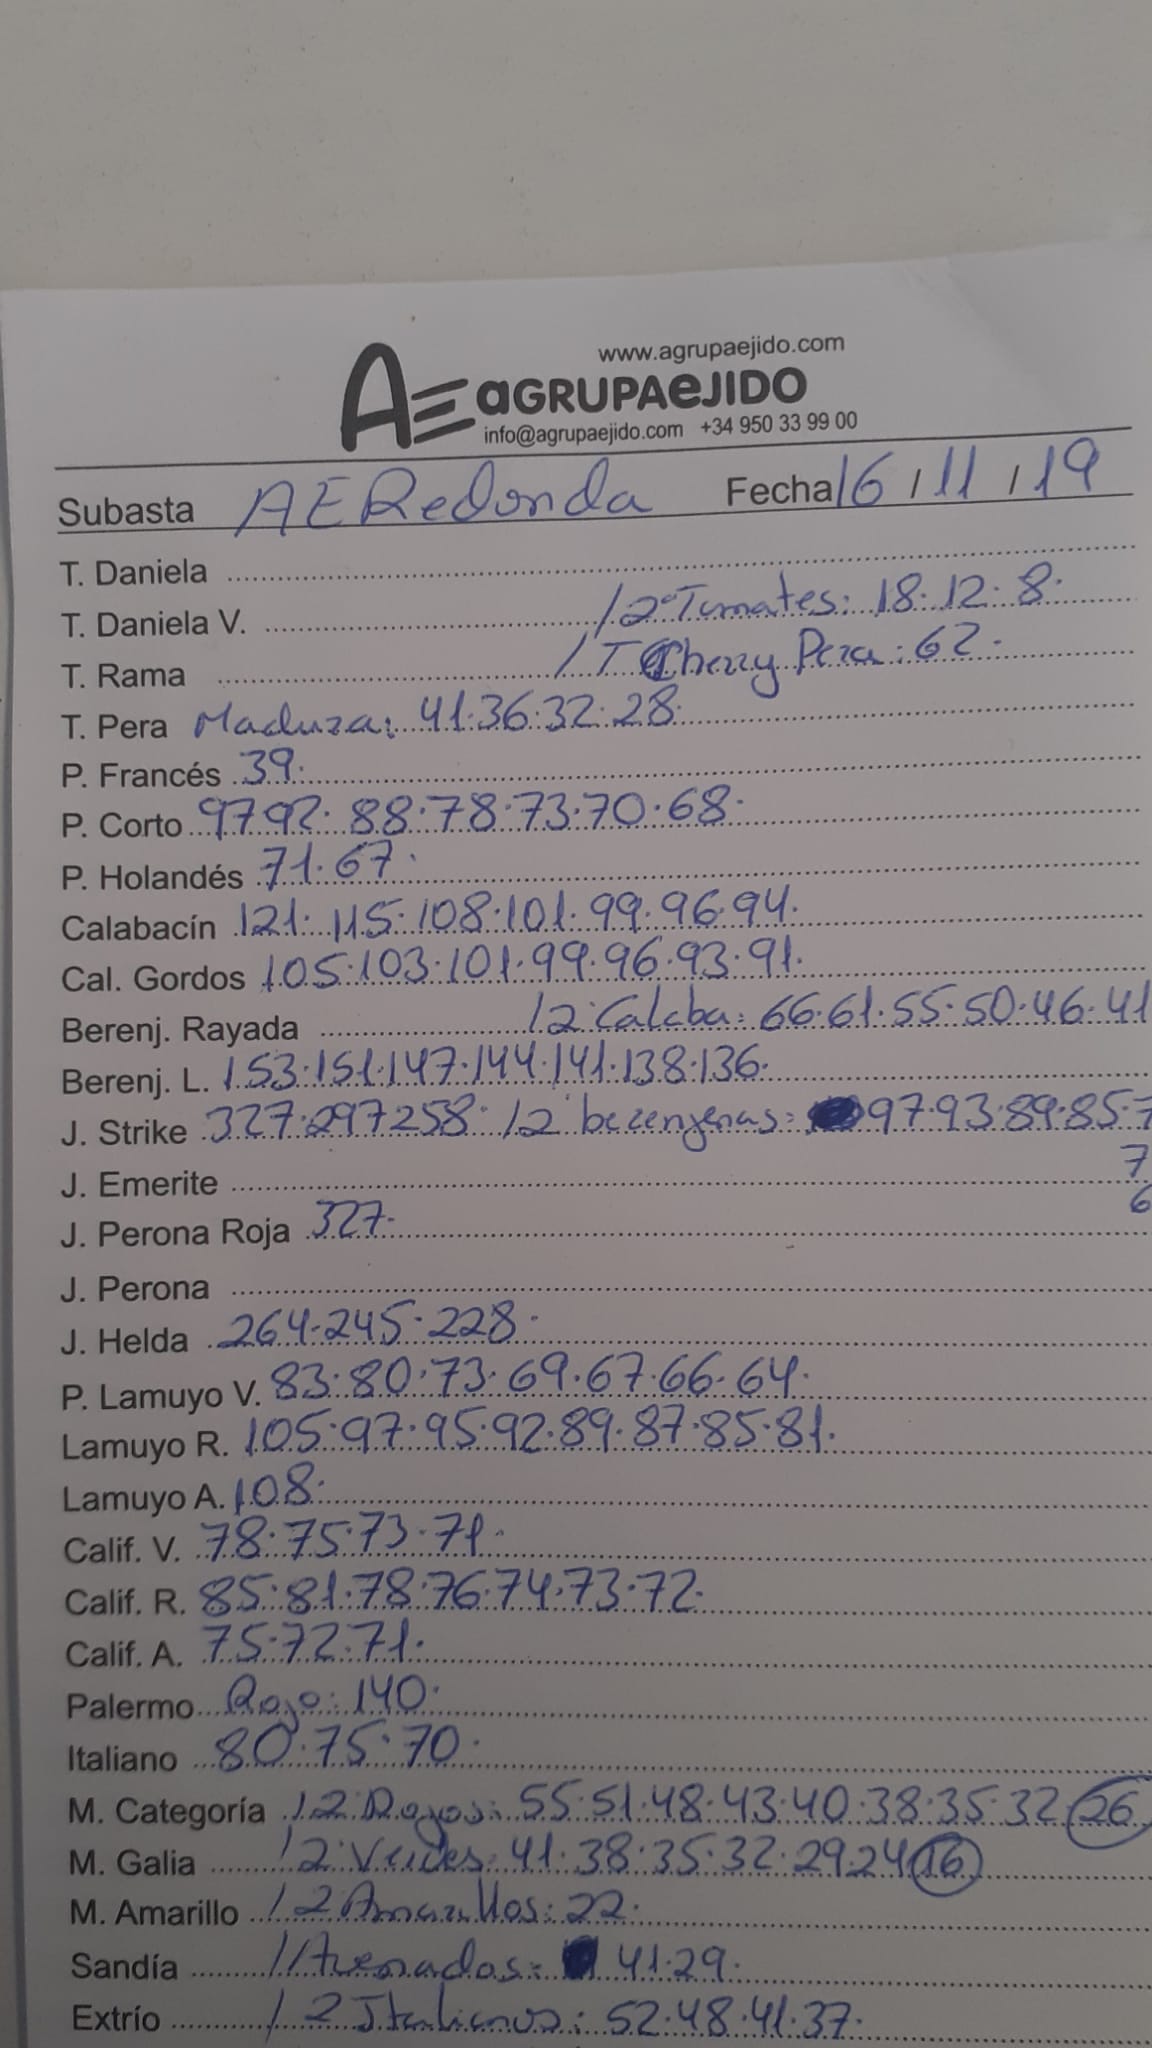 www.agrupaejido.com
AE aGRUPAeJIDO
info@agrupaejido.com +34 950 33 99 00
Subasta AERedonda Fecha 16/11/19
T. Daniela
T. Daniela V. /2ºTomates: 18·12·8·
T. Rama /T Cherry Pera: 62·
T. Pera Madura: 41·36·32·28·
P. Francés 39·
P. Corto 97·92·88·78·73·70·68·
P. Holandés 71·67·
Calabacín 121·115·108·101·99·96·94·
Cal. Gordos 105·103·101·99·96·93·91·
Berenj. Rayada /2ºCalaba: 66·61·55·50·46·41
Berenj. L. 153·151·147·144·141·138·136·
J. Strike 327·297·258· /2ºberengenas: 97·93·89·85·7
7
J. Emerite
6
J. Perona Roja 327·
J. Perona
J. Helda 264·245·228·
P. Lamuyo V. 83·80·73·69·67·66·64·
Lamuyo R. 105·97·95·92·89·87·85·81·
Lamuyo A. 108·
Calif. V. 78·75·73·71·
Calif. R. 85·81·78·76·74·73·72·
Calif. A. 75·72·71·
Palermo Rojo: 140·
Italiano 80·75·70·
M. Categoría /2ºRojos: 55·51·48·43·40·38·35·32·26
M. Galia /2ºVerdes: 41·38·35·32·29·24·16
M. Amarillo /2ºAmarillos: 22·
Sandía //Asenados: 41·29·
Extrío /2ºItalianos: 52·48·41·37·